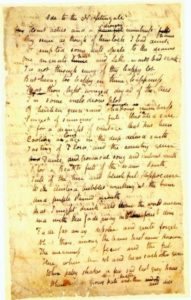 Ode to the Nightingale
Heart aches and a numbness
My sense as though of hemlock I had drunk
Or emptied some dull opiate to the drains
One minute past and Lethe wards had sunk
Tis not through envy of thy happy lot
But being too happy in thine happiness
That thou light winged dryad of the trees
In some melodious plot
Of beechen green and shadows numberless
Singest of summer in full-throated ease
O for a draught of vintage that has been
Cooling an age in the deep delved earth
Tasting of Flora and the country green
And Dance, and provencal song and sunburnt mirth
O for a Beaker full of the warm South
Full of the true and blushful Hippocrene
With cluster'd bubbles winking at the brim
And purple stained mouth
That I might drink and leave the world unseen
And with thee fade away into the forest dim
Fade far away dissolve and quite forget
What thou among the leaves hast never known
The weariness the fever and the fret
Here where men sit and hear each other groan
Where palsy shakes a few sad last grey hairs
Where youth grows pale and thin and